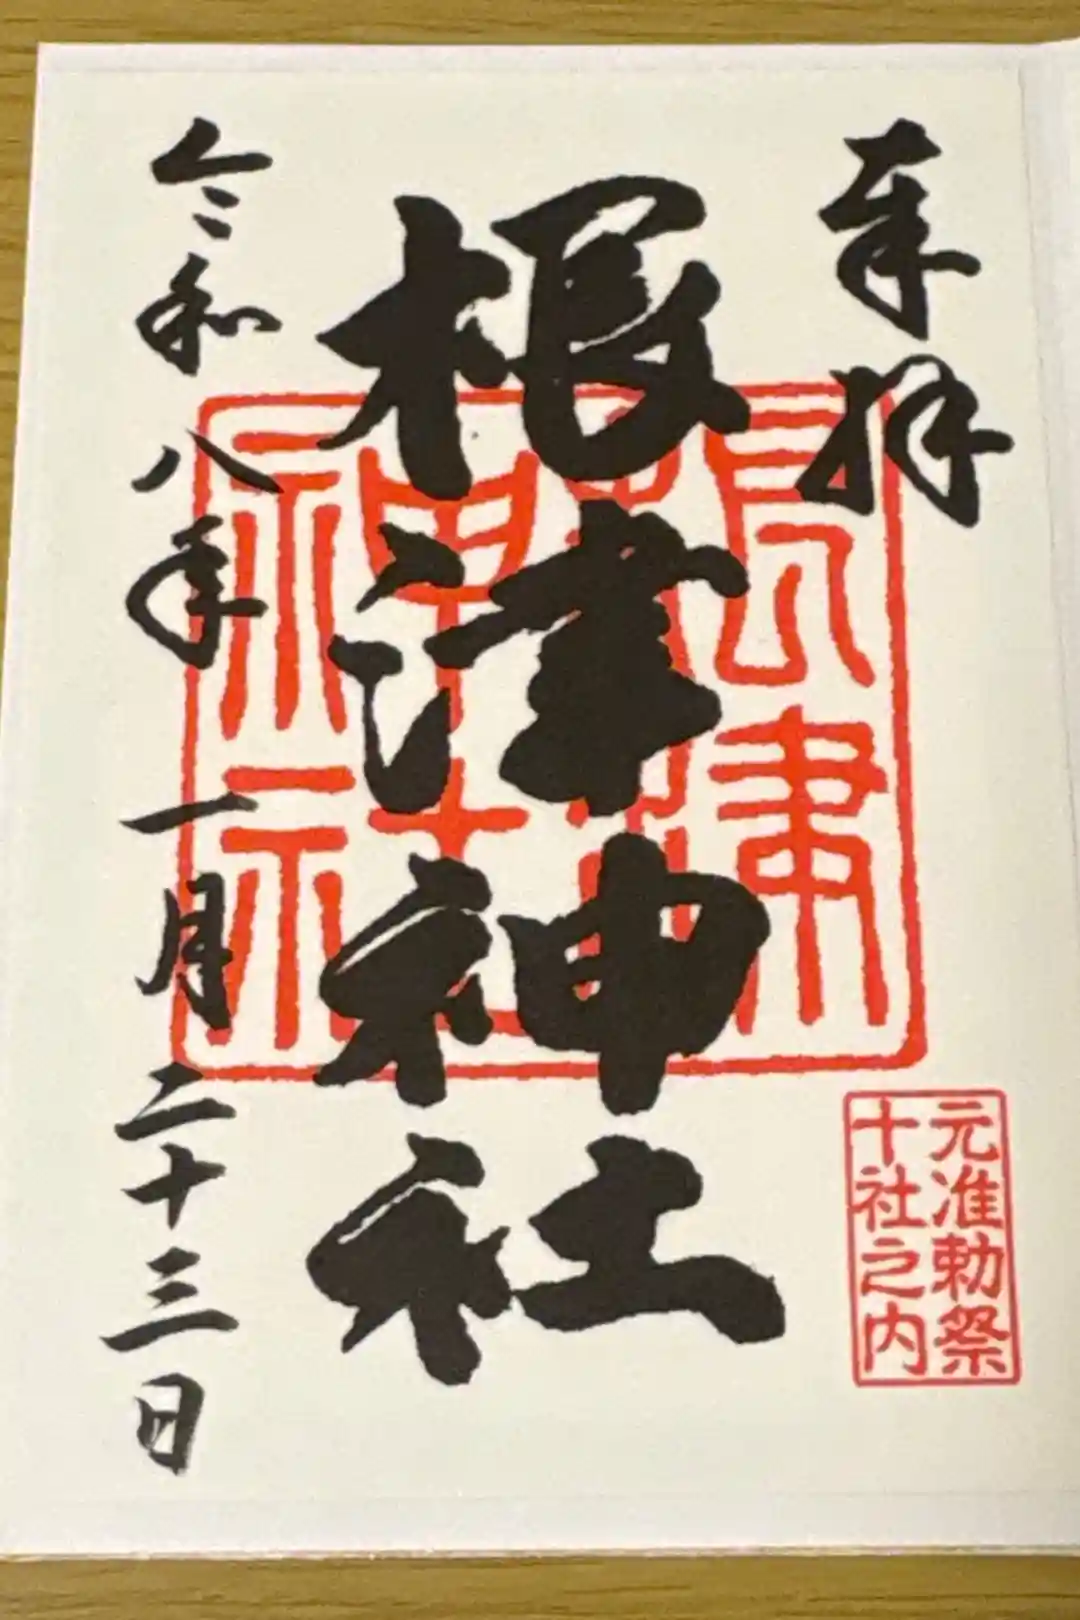 奉拝
根津神社
令和八年一月二十三日
根津神社
元准勅祭
十社之内